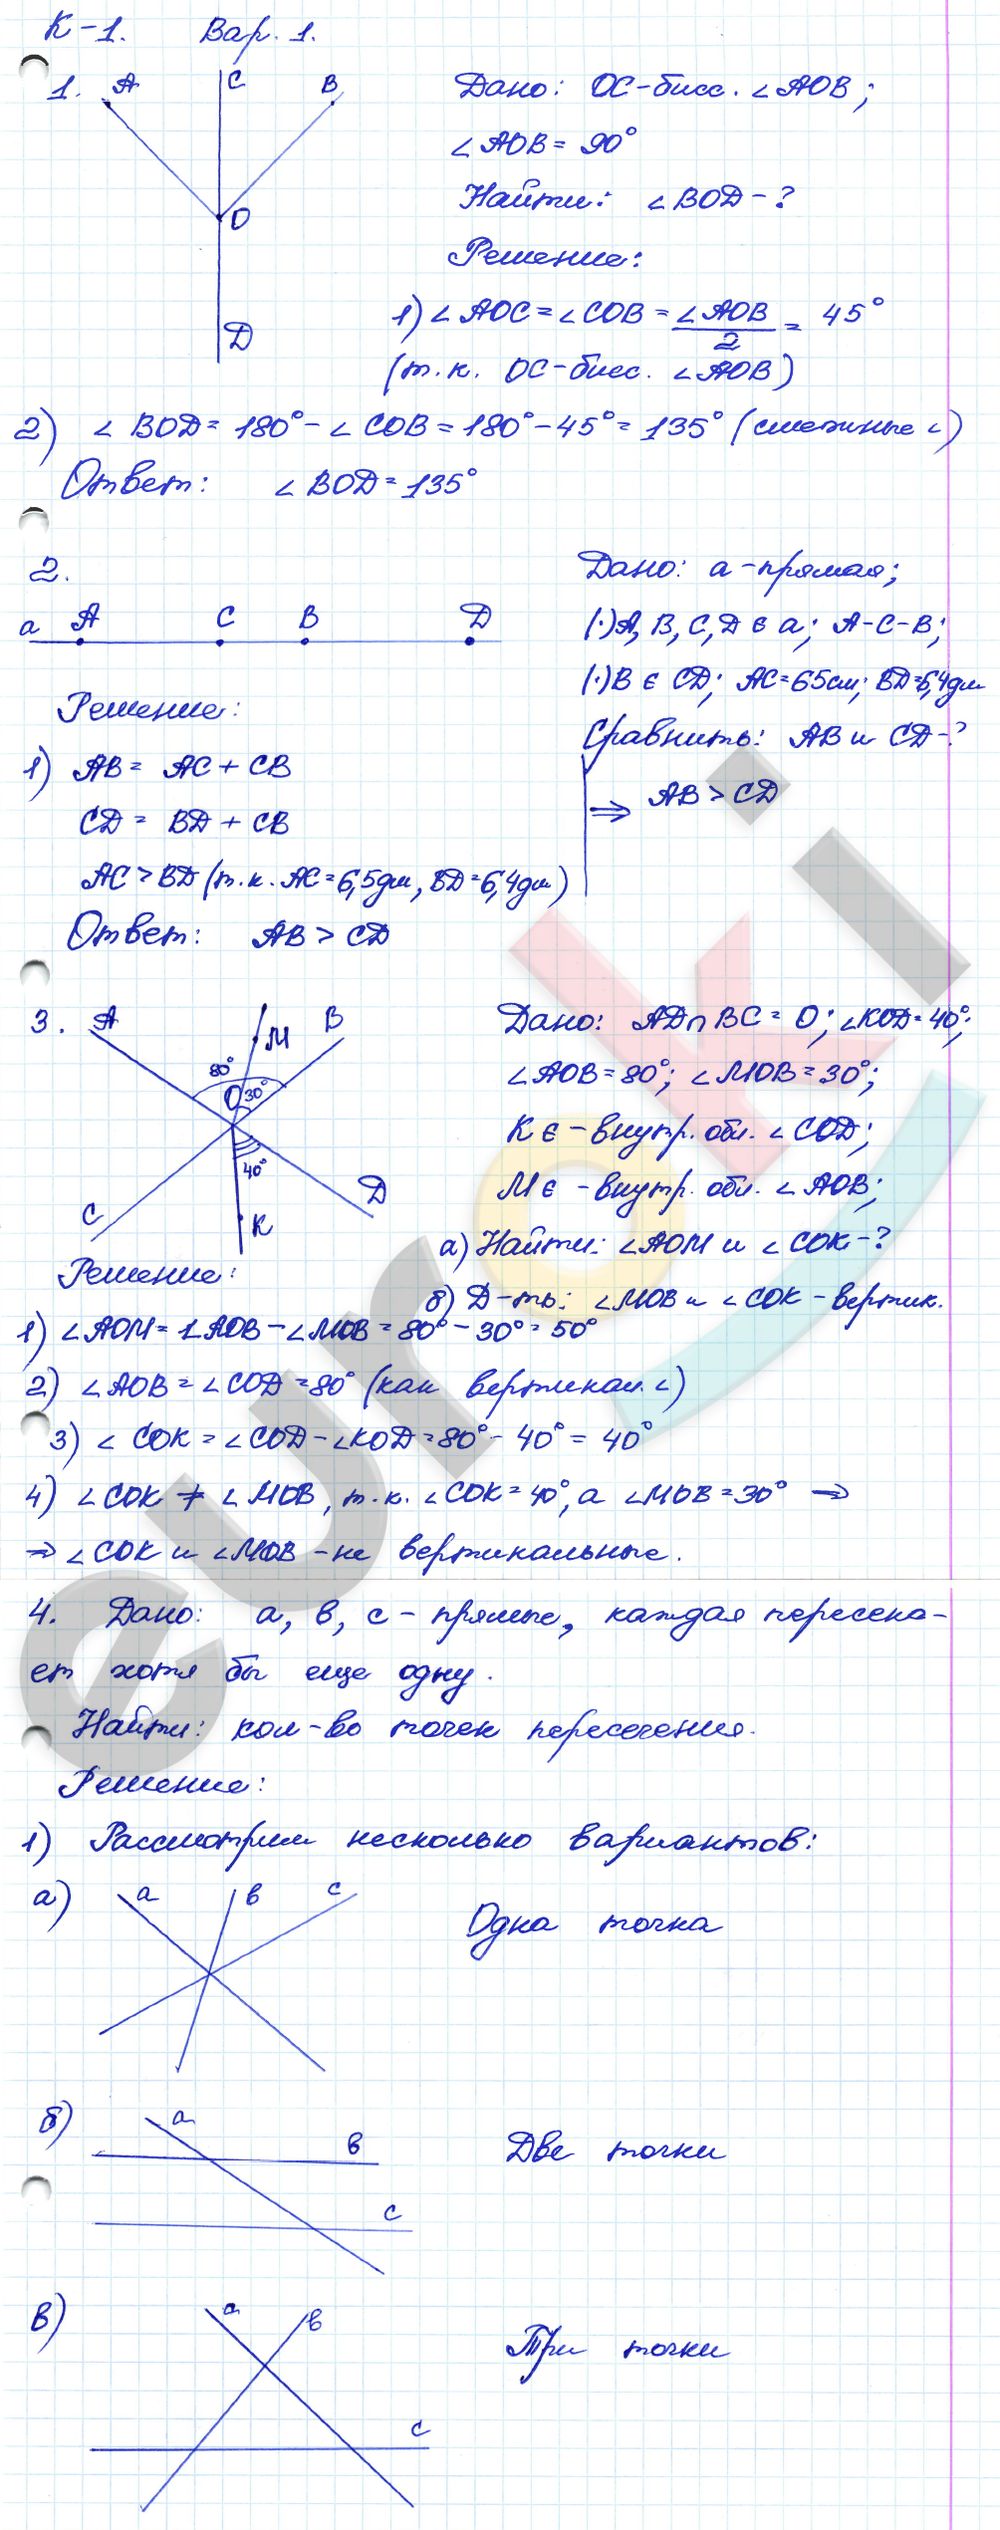 К-1. Вар. 1.
1. A C B O D
Дано: OC-бисс. ∠AOB;
∠AOB = 90°
Найти: ∠BOD - ?
Решение:
1) ∠AOC = ∠COB = ∠AOB/2 = 45°
(т.к. OC-бисс. ∠AOB)
2) ∠BOD = 180° - ∠COB = 180° - 45° = 135° (смежные ∠)
Ответ: ∠BOD = 135°
2.
a A C B D
Дано: a-прямая;
(·)A, B, C, D ∈ a; A-C-B;
(·)B ∈ CD; AC = 65см; BD = 6,4дм
Сравнить: AB и CD-?
Решение:
1) AB = AC + CB
CD = BD + CB
AC > BD (т.к. AC = 6,5дм, BD = 6,4дм)
⇒ AB > CD
Ответ: AB > CD
3. A M B 80° O 30° 40° C K D
Дано: AD∩BC = O; ∠KOD = 40°;
∠AOB = 80°; ∠MOB = 30°;
K ∈ - внутр. обл. ∠COD;
M ∈ - внутр. обл. ∠AOB;
а) Найти: ∠AOM и ∠COK-?
б) Д-ть: ∠MOB и ∠COK - вертик.
Решение:
1) ∠AOM = ∠AOB - ∠MOB = 80° - 30° = 50°
2) ∠AOB = ∠COD = 80° (как вертикал. ∠)
3) ∠COK = ∠COD - ∠KOD = 80° - 40° = 40°
4) ∠COK ≠ ∠MOB, т.к. ∠COK = 40°, а ∠MOB = 30° ⇒
⇒ ∠COK и ∠MOB - не вертикальные.
4. Дано: a, b, c - прямые, каждая пересека-
ет хотя бы еще одну.
Найти: кол-во точек пересечения.
Решение:
1) Рассмотрим несколько вариантов:
а) a b c
Одна точка
б) a b c
Две точки
в) a b c
Три точки
euroki